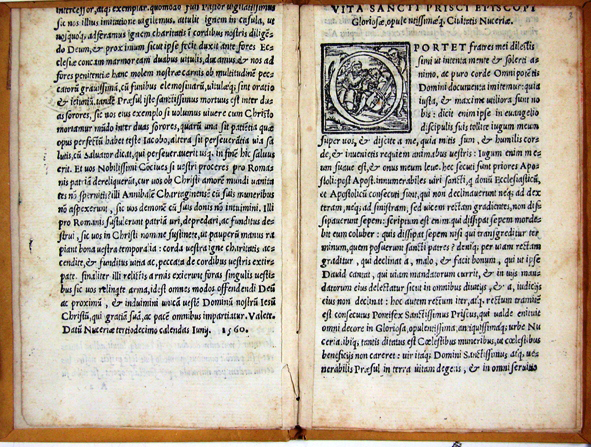 tercessor, aliud exemplar, quomodo fuit pastor uigilātissimus
sic nos illius imitatione uigilemus, attulit ignem in casula, ut
uosquoq; adferamus ignem charitatis ī cordibus nostris diligē
do Deum, & proximum sicut ipse fecit; duxit ante fores Ec
clesiæ concam marmoream duabus uitulis, ducamus, & nos ad
fores penitentiæ hanc molem nostræ carnis ob multitudinē pec
catorū grauissimā, cū funibus elemosynarū, uitulæq; sint oratio
& ieiuniū, tandē Præsul iste sanctissimus mortuus est inter duas
sorores, sic nos eius exemplo si uolumus uiuere cum Christo
mortamur mūdo inter duas sorores, quarū una sit patiētia quæ
opus perfectū habet teste Iacobo, altera sit perseuerātia uia sa
lutis, cū Saluator dicat, qui perseuerauerit usq. in finē hic saluus
erit. Et uos Nobilissimi Cociues si uestri proceres pro Roma
nis patriā dereliquerāt, cur uos ob Christi amorē mundi uanita
tes nō spernitis? illi Annibalē Chartaginensē cū suis muneribus
nō aspexerunt, sic uos demonē cū suis donis nō intuimini. Illi
pro Romanis passi uerunt patriā uri, depredari, ac funditus de
strui, sic uos in Christi nomine sustinete, ut pauperū manus ra
piant bona uestra temporalia: corda uestra igne charitatis ac
cendite, & funditus uitia ac, peccata de cordibus uestris extir
pate. finaliter illi relictis armis exierunt foras singulis uestibus
sic uos relinqte arma, id est omnes modos offendendi Deū
ac proximū, & induimini unicā uestē Dominū nostrū Iesū
Christū, qui gratiā suā, ac pacē omnibus impartiatur. Valete.
Datū Nuceriæ tertiodecimo calendas Iunij. 1560.
VITA SANCTI PRISCI EPISCOPI
Gloriosæ, opulentissimæq. Ciuitatis Nuceriæ.
OPORTET fratres mei dilectis
simi ut intenta mente & solerti a
nimo, ac puro corde Omnipotētis
Domini documenta imitemur: quia
iusta, & maxime utiliora sunt no
bis: dicit enim ipse in euangelio
discipulis suis tollite iugum meum
super uos, & discite a me, quia mitis sum, & humilis cor
de, & inuenietis requiem animabus uestris: Iugum enim me
um suaue est, & onus meum leue. hec secuti sunt priores Apo
stoli: post Apost. innumerabiles uiri sancti, q donū Ecclesiasticū,
ac Apostolicū consecuti sunt, qui non declinauerunt neq; ad dex
teram, neq; ad sinistram, sed uicem rectam gradientes, non dis
sipauerunt sepem: scriptum est enim. qui dissipat sepem morde
bit eum coluber: quis dissipat sepem nisi qui transgreditur ter
minum, quem posuerunt sancti patres? deniq; per uiam rectam
graditur, qui declinat a, malo, & facit bonum, qui ut ipse
Dauid canit, qui uitam mandatorum currit, & in uijs manda
datorum eius delectatur sicut in omnibus diuitijs, & a, iudicijs
eius non declinat: hoc autem rectum iter, atq. rectum tramitē
est consecutus Pontifex Sanctissimus Priscus, qui ualde enituit
omni decore in Gloriosa, opulentissima, antiquissimaq; urbe Nu
ceria. ibiq; tantis ditatus est Cœlestibus muneribus, ut cœlestibus
beneficijs non careret: uir itaq; Domini Sanctissimus atq. ue
nerabilis Præsul in terra uitam degens, & in omni seruitio